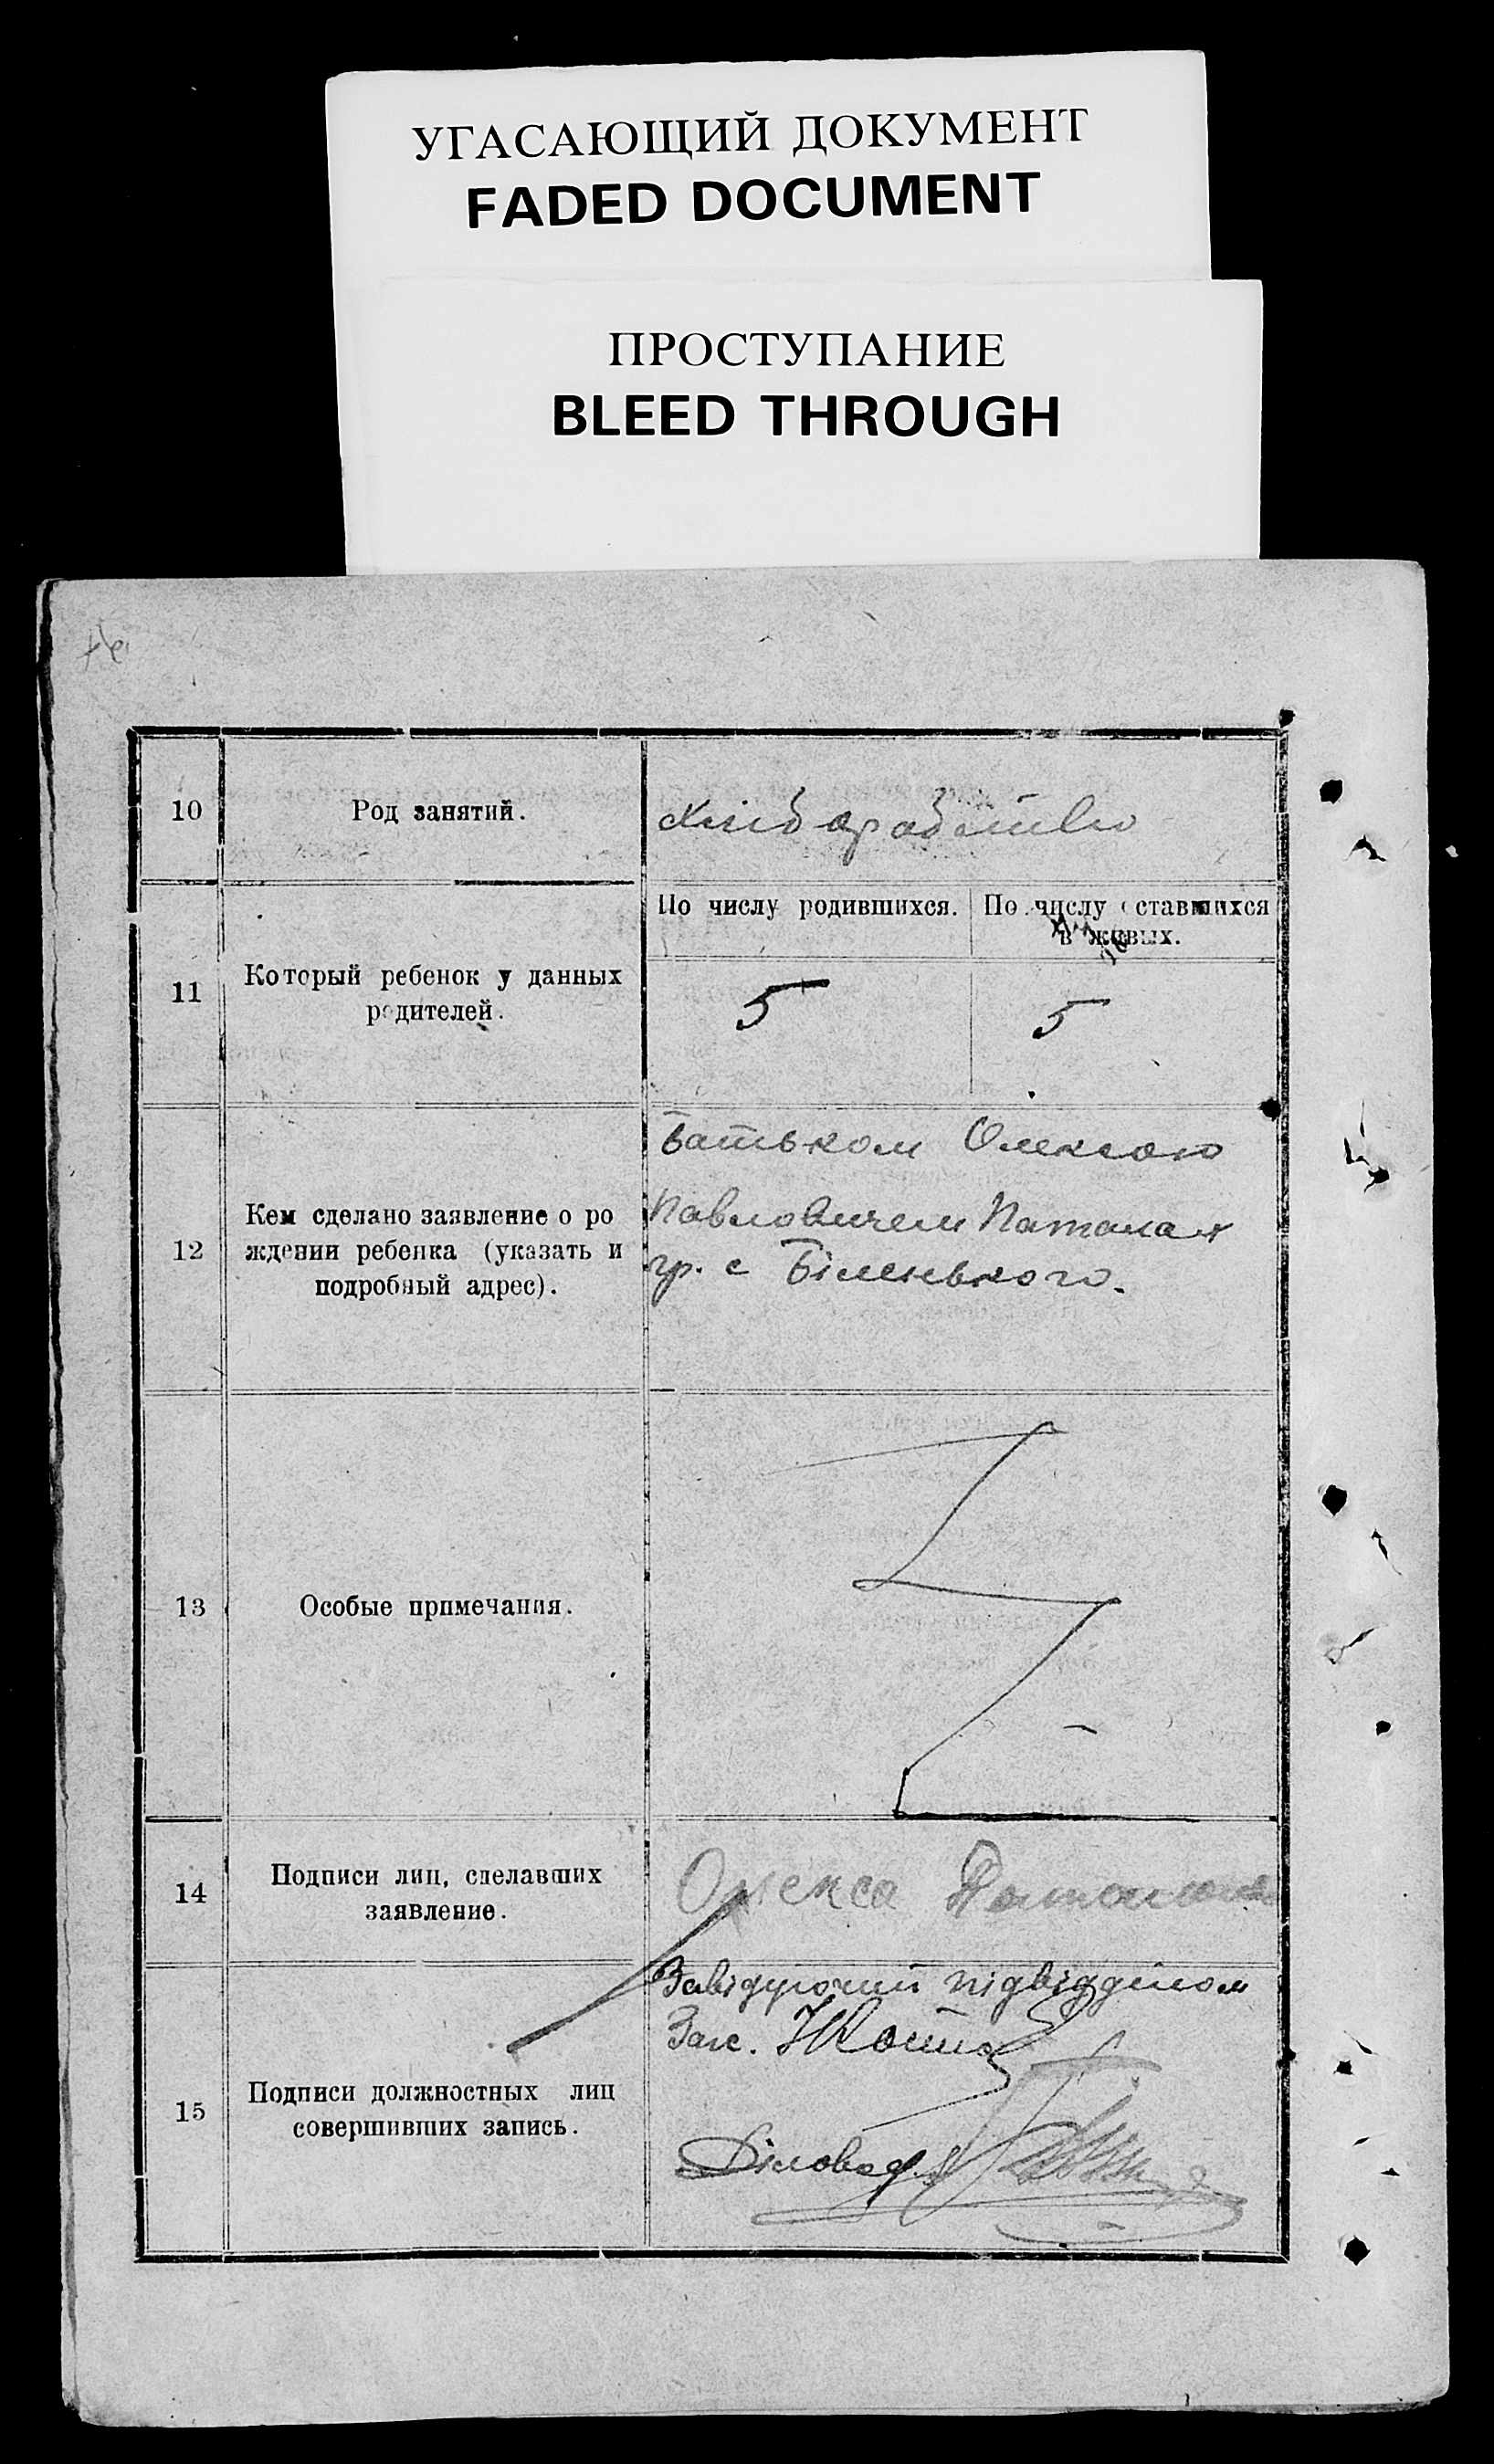 УГАСАЮЩИЙ ДОКУМЕНТ
FADED DOCUMENT
ПРОСТУПАНИЕ
BLEED THROUGH
10
Род занятий.
11
Который ребенок у данных
родителей.
По числу родившихся.
По числу оставшихся
в живых.
5
5
12
Кем сделано заявление о ро
ждении ребенка (указать и
подробный адрес).
Батьком Олексою
Павловичем
гр. с Біленького.
13
Особые примечания.
14
Подписи лиц, сделавших
заявление.
Олекса
15
Подписи должностных лиц
совершивших запись.
Завідуючий підвідділом
Загс.
Діловод